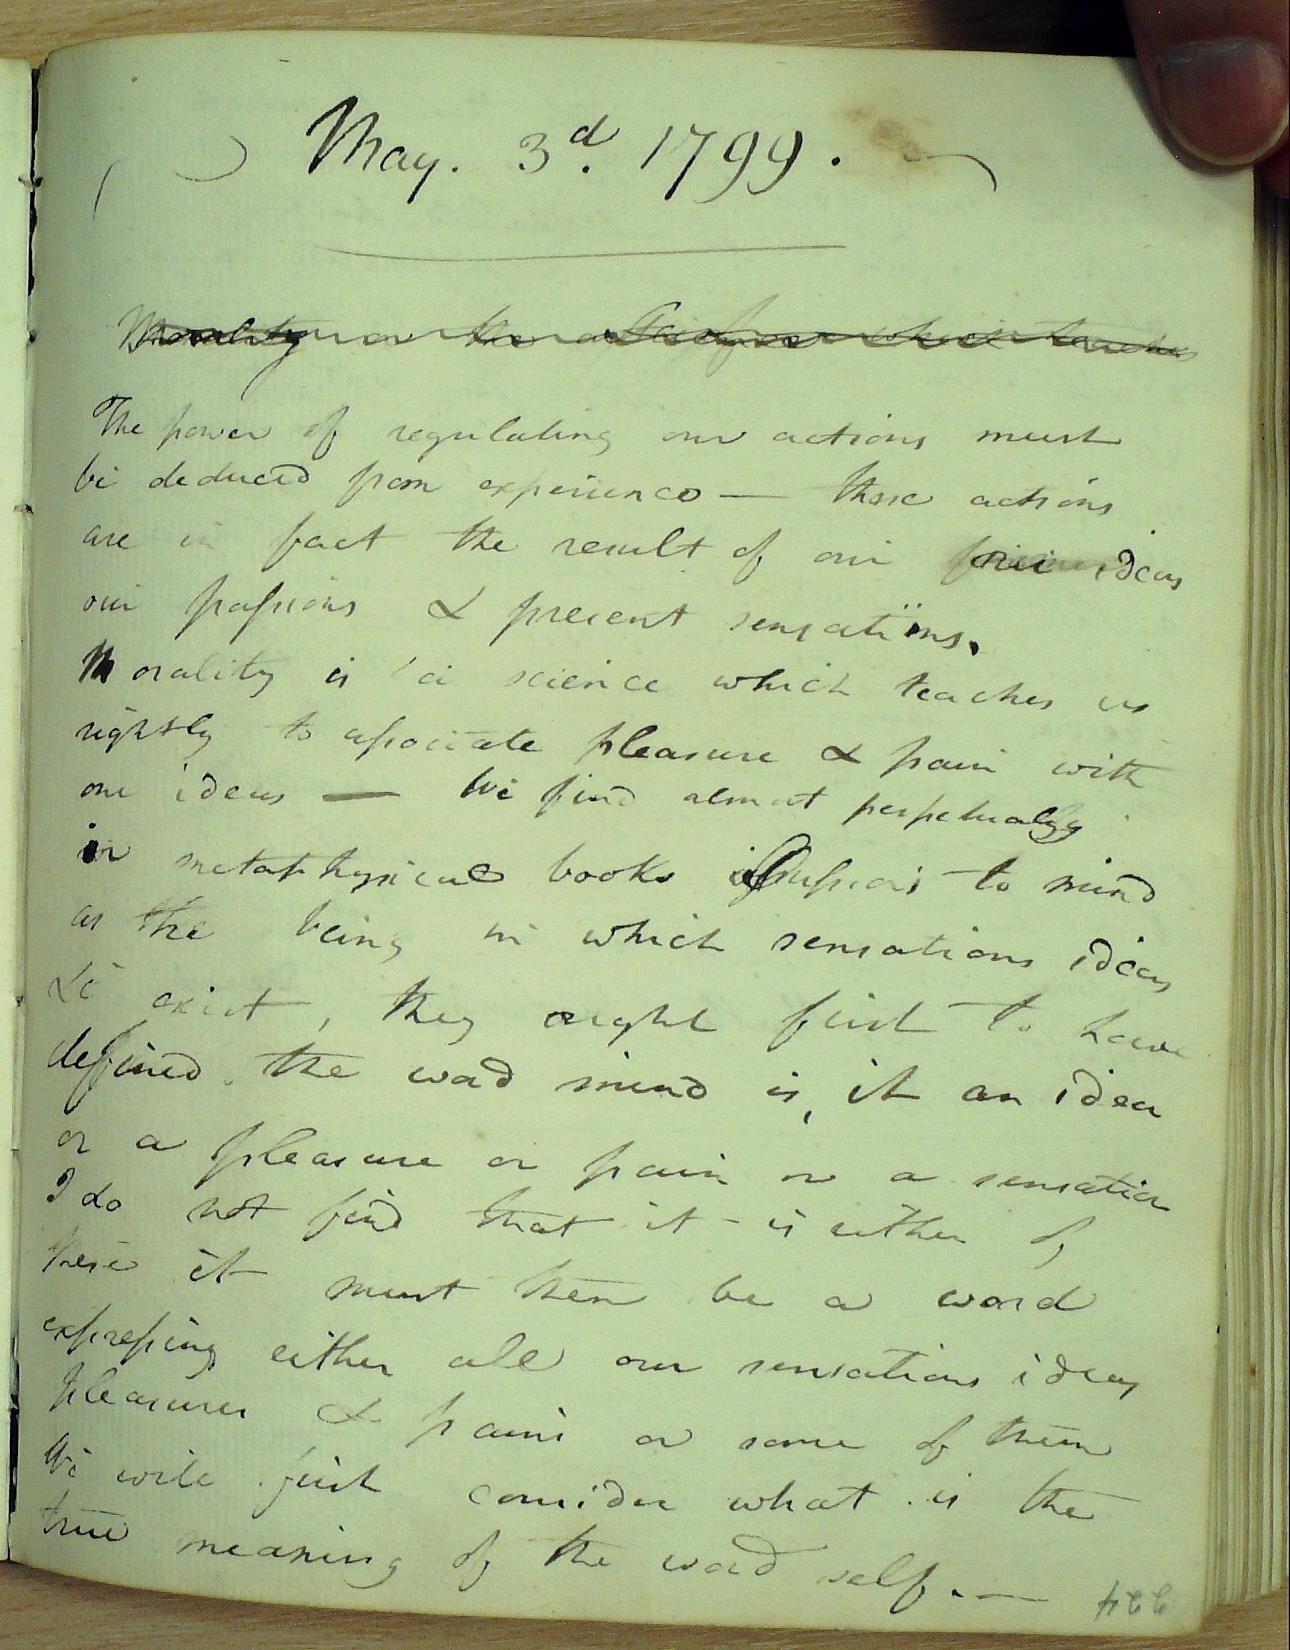 May. 3d. 1799.
Morality is the science which teaches
The power of regulating our actions must
be deduced from experience — these actions
are in fact the result of our ideas
our passions & present sensations.
Morality is a science which teaches us
rightly to associate pleasure & pain with
our ideas — We find almost perpetually
in metaphysical books to mind
as the being in which sensations ideas
&c exist, they ought first to have
defined. the word mind is, it an idea
or a pleasure or pain or a sensation
I do not find that it is either of
these it must then be a word
expressing either all our sensations ideas
pleasures & pains or some of them
We will first consider what is the
true meaning of the word self. —